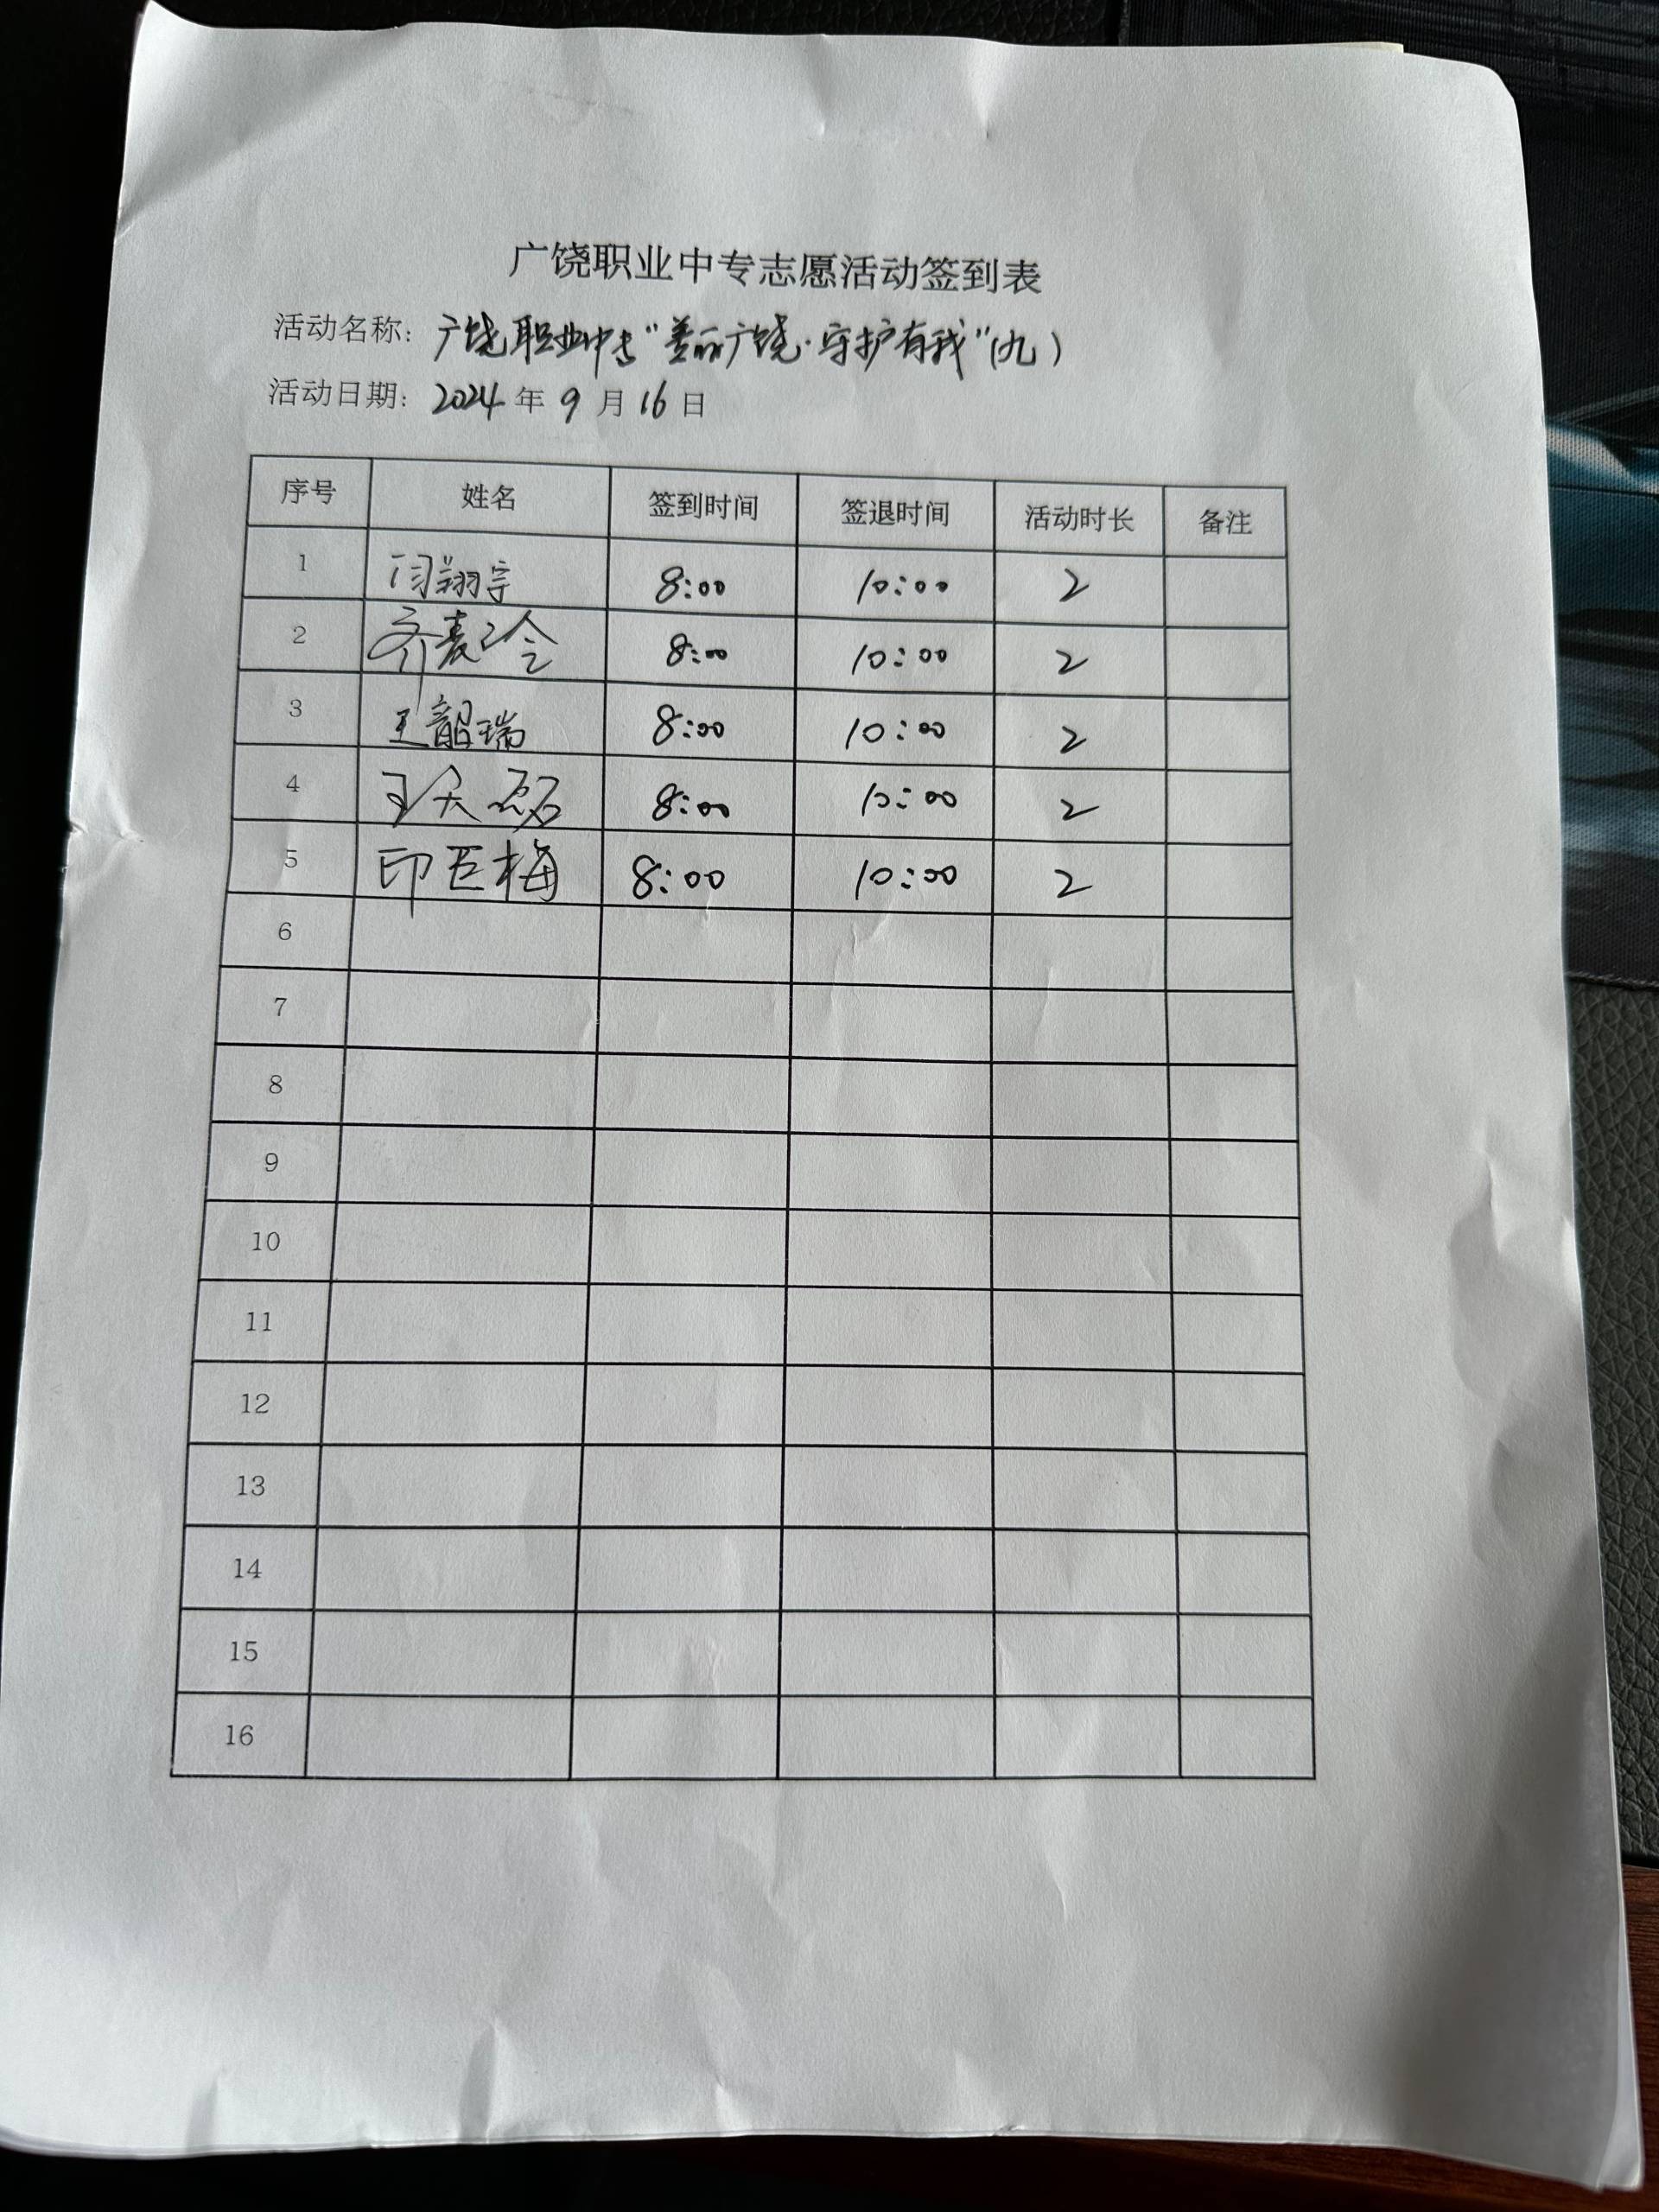 广饶职业中专志愿活动签到表
活动名称：广饶职业中专“美丽广饶·守护有我”（九）
活动日期：2024年9月16日
序号 姓名 签到时间 签退时间 活动时长 备注
1 闫翔宇 8:00 10:00 2
2 8:00 10:00 2
3 王韶瑞 8:00 10:00 2
4 王天磊 8:00 10:00 2
5 印臣梅 8:00 10:00 2
6
7
8
9
10
11
12
13
14
15
16